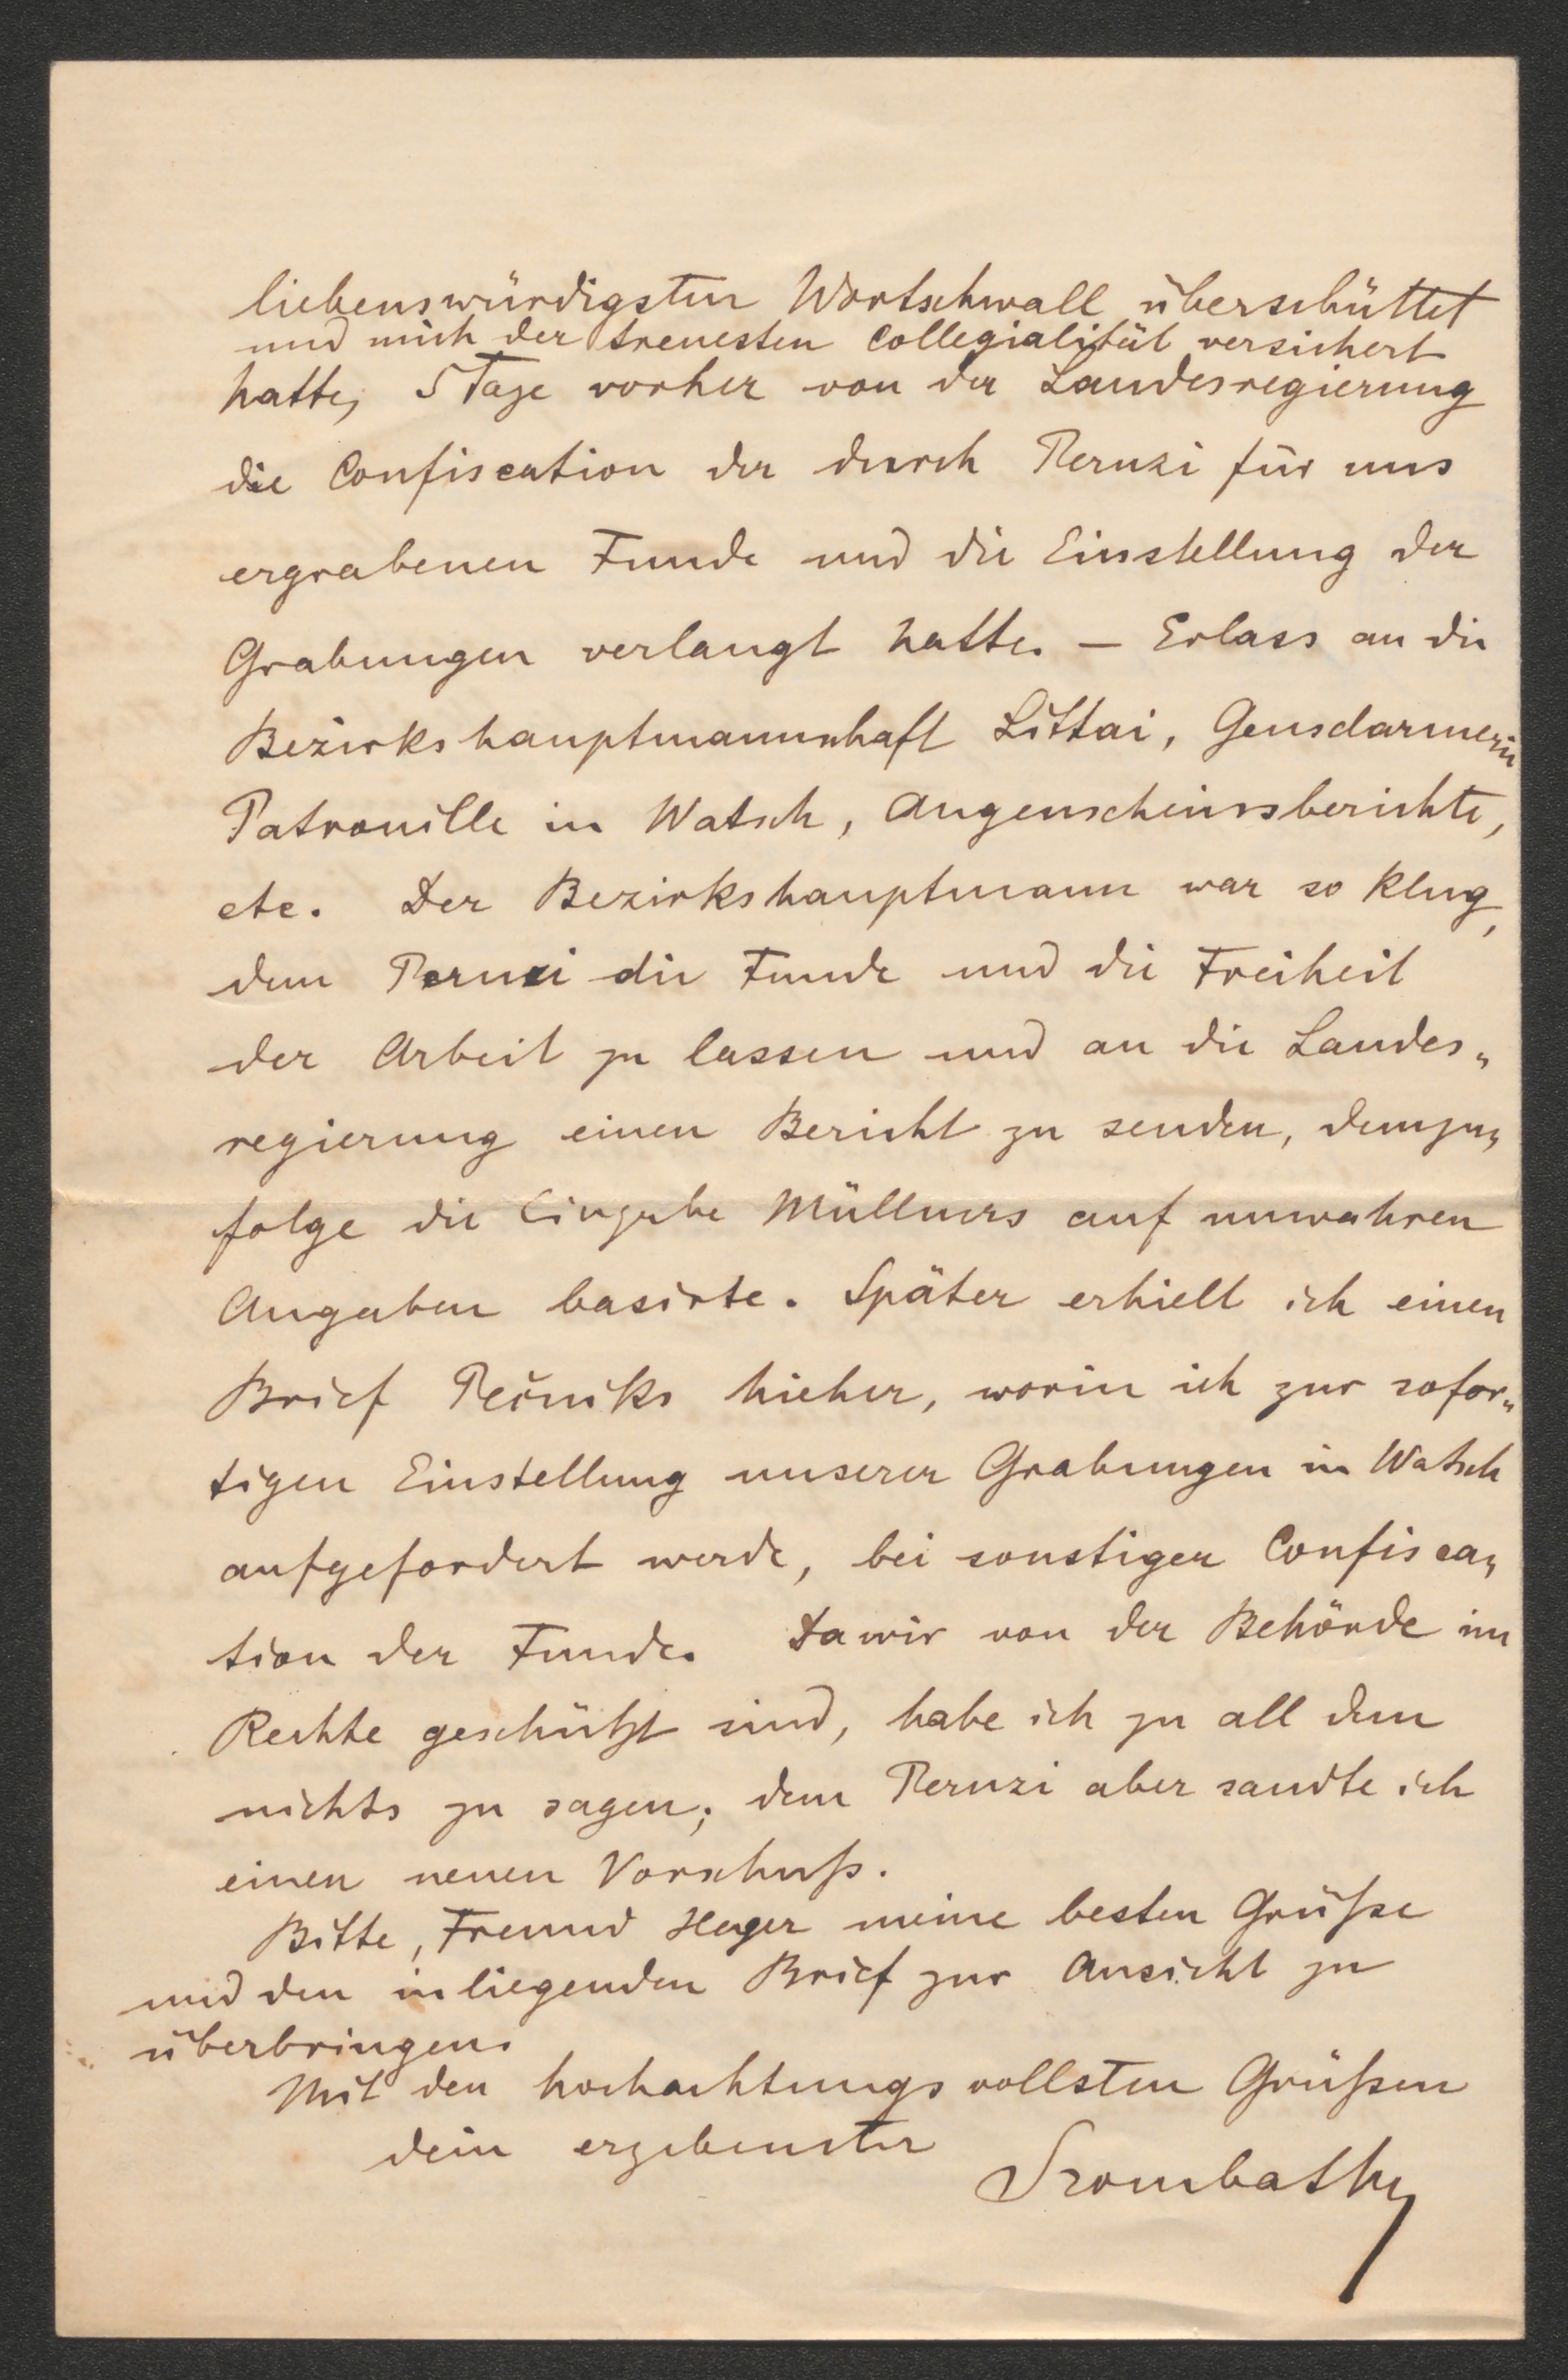 liebenswürdigsten Wortschwall überschüttet
und mich der treuesten Collegialität versichert
hatte, 5 Tage vorher von der Landesregierung
die Confiscation der durch Pernzi für uns
ergrabenen Funde und die Einstellung der
Grabungen verlangt hatte. — Erlass an die
Bezirkshauptmannschaft Littai, Gensdarmerie
Patrouille in Watsch, Augenscheinsberichte,
etc. Der Bezirkshauptmann war so klug,
dem Pernzi die Funde und die Freiheit
der Arbeit zu lassen und an die Landes„
regierung einen Bericht zu senden, demzu„
folge die Eingabe Müllners auf unwahren
Angaben basirte. Später erhielt ich einen
Brief Pečniks hieher, worin ich zur sofor„
tigen Einstellung unserer Grabungen in Watsch
aufgefordert werde, bei sonstiger Confisca„
tion der Funde. Da wir von der Behörde im
Rechte geschützt sind, habe ich zu all dem
nichts zu sagen; dem Pernzi aber sandte ich
einen neuen Vorschuß.
Bitte, Freund Heger meine besten Grüße
und den inliegenden Brief zur Ansicht zu
überbringen.
Mit den hochachtungsvollsten Grüßen
dein ergebenster
Szombathy